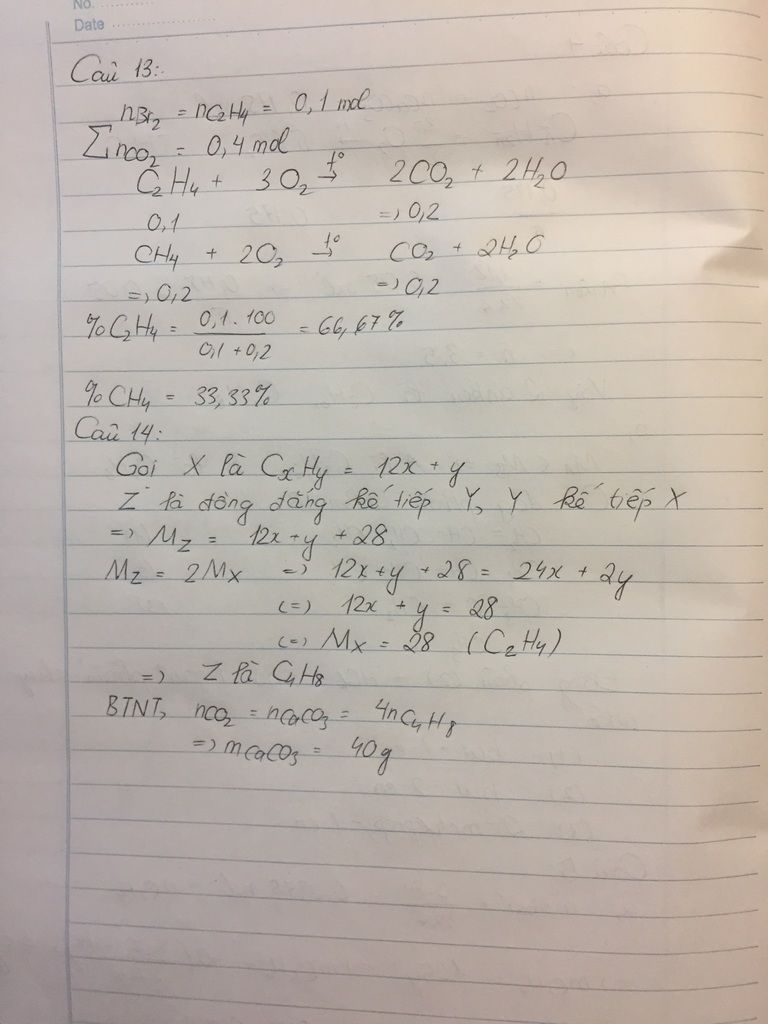 No. ............
Date ..................
Câu 13:
nBr2 = nC2H4 = 0,1 mol
∑nCO2 = 0,4 mol
C2H4 + 3O2 →t° 2CO2 + 2H2O
0,1 => 0,2
CH4 + 2O2 →t° CO2 + 2H2O
=> 0,2 => 0,2
%C2H4 = 0,1 . 100 / 0,1 + 0,2 = 66,67%
%CH4 = 33,33%
Câu 14:
Gọi X là CxHy = 12x + y
Z là đồng đẳng kế tiếp Y, Y kế tiếp X
=> MZ = 12x + y + 28
MZ = 2MX => 12x + y + 28 = 24x + 2y
<=> 12x + y = 28
<=> MX = 28 (C2H4)
=> Z là C4H8
BTNT, nCO2 = nCaCO3 = 4nC4H8
=> mCaCO3 = 40g